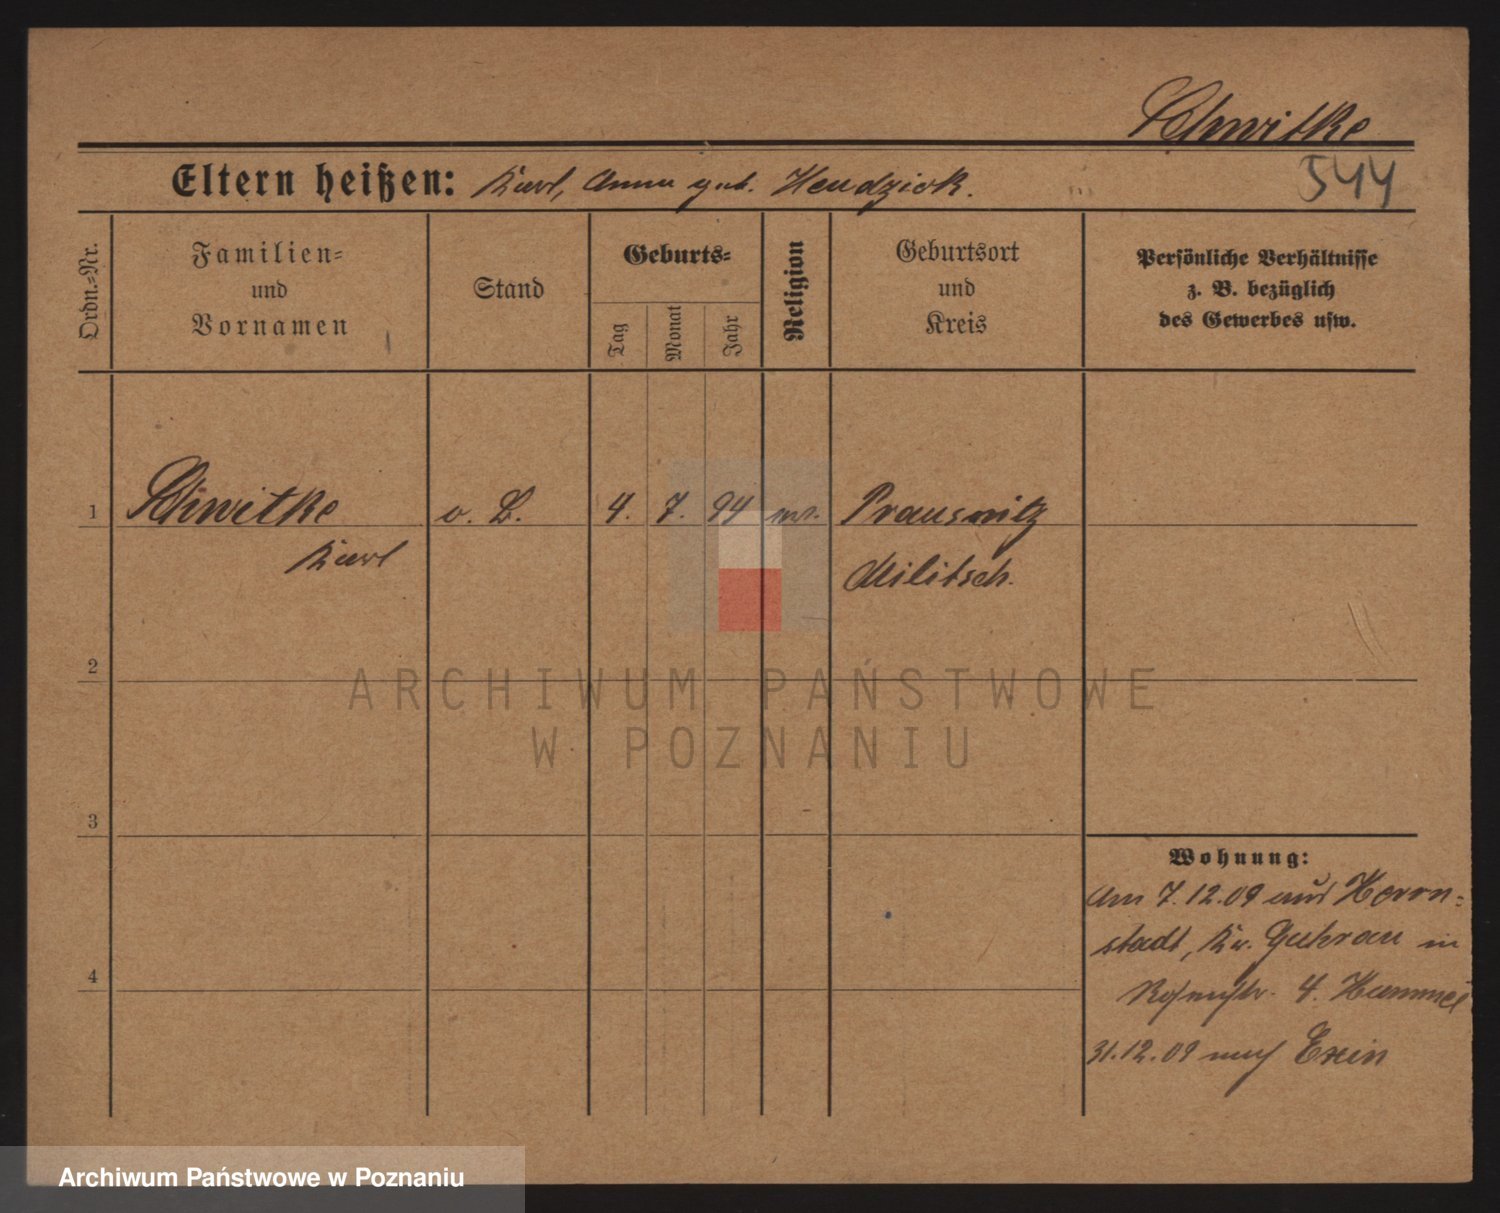 Schwitke
Eltern heißen: Karl, Anna geb. Hendziok.
544
Ordn.=Nr.
Familien=
und
Vornamen
Stand
Geburts=
Tag
Monat
Jahr
Religion
Geburtsort
und
Kreis
Persönliche Verhältnisse
z. B. bezüglich
des Gewerbes usw.
1 Schwitke o. B. 4. 7. 94 Prausnitz
Karl Militsch.
2
3
4
Wohnung:
Am 7.12.09 aus Herrn=
stadt, Kr. Guhrau in
4. Hummel
31.12.09 nach Exin
ARCHIWUM PAŃSTWOWE
W POZNANIU
Archiwum Państwowe w Poznaniu